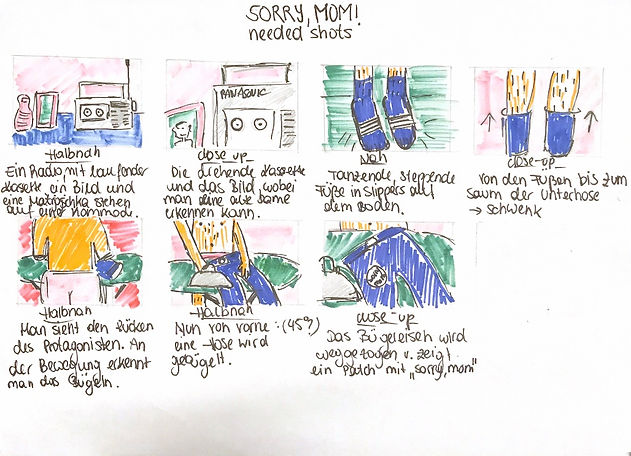 SORRY, MOM!
needed shots
PANASONIC
Halbnah
Ein Radio mit laufender
Kassette, ein Bild und
eine Matrioschka stehen
auf einer Kommode.
close up
Die drehende Kassette
und das Bild, wobei
man eine alte Dame
erkennen kann.
Nah
Tanzende, steppende
Füße in Slippers auf
dem Boden.
close-up
Von den Füßen bis zum
Saum der Unterhose
→ Schwenk
Halbnah
Man sieht den Rücken
des Protagonisten. An
der Bewegung erkennt
man das Bügeln.
Halbnah
Nun von vorne :(45°)
eine Hose wird
gebügelt.
close-up
Das Bügeleisen wird
weggezogen u. zeigt
ein Patch mit „sorry, mom"